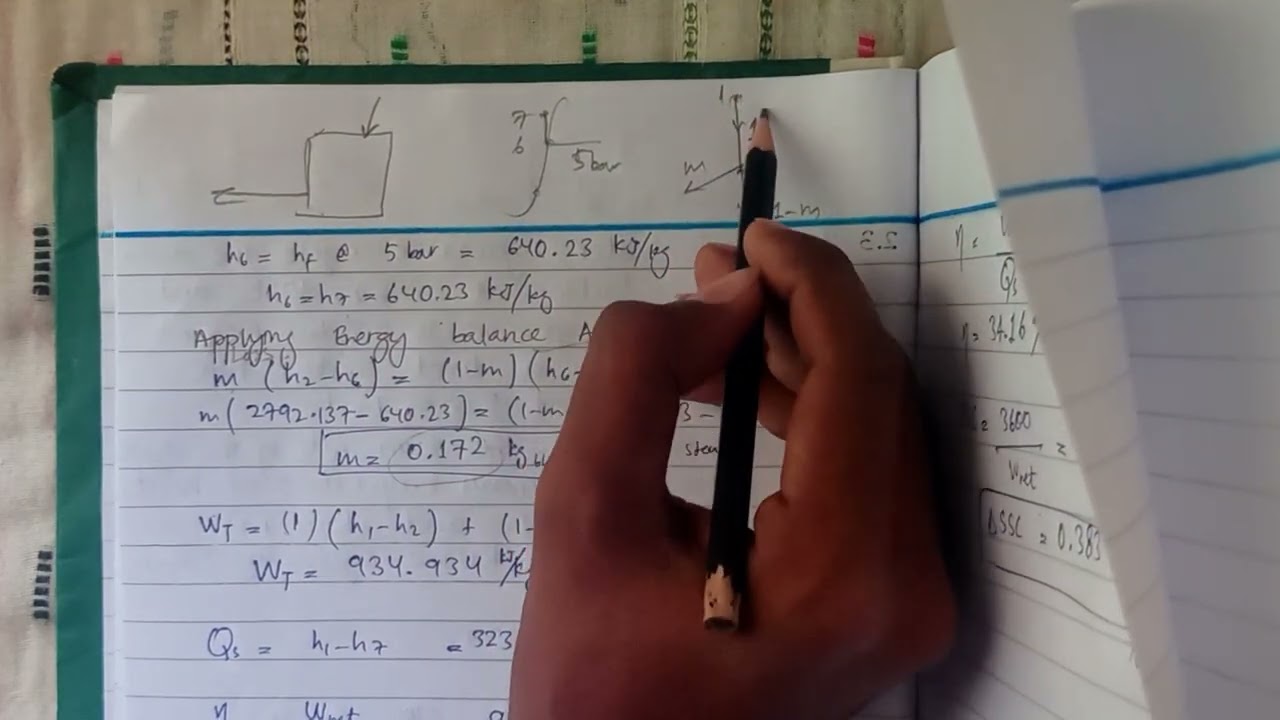 7
6
5 bar
1
m
1-m
h6 = hf @ 5 bar = 640.23 kJ/kg
h6 = h7 = 640.23 kJ/kg
Applying Energy balance A
m (h2-h6) = (1-m) (h6-
m (2792.137 - 640.23) = (1-m 3 -
m = 0.172 kg
WT = (1) (h1-h2) + (1-
WT = 934.934 kJ/k
Qs = h1-h7 = 323
η Wnet 9
η =
Qs
η = 34.16
= 3600 =
Wnet
ΔSSC = 0.383